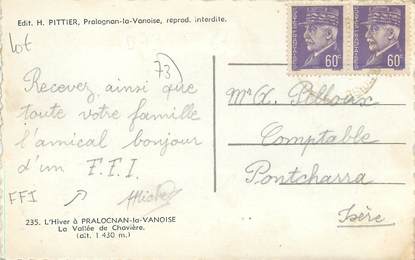 Edit. H. PITTIER, Pralognan-la-Vanoise, reprod. interdite.
Lot
73
Recevez ainsi que
toute votre famille
l'amical bonjour
d'un F.F.I.
FFI
235. L'Hiver à PRALOGNAN-la-VANOISE
La Vallée de Chavière.
(alt. 1 430 m.)
60c
60c
Comptable
Pontcharra
Isère